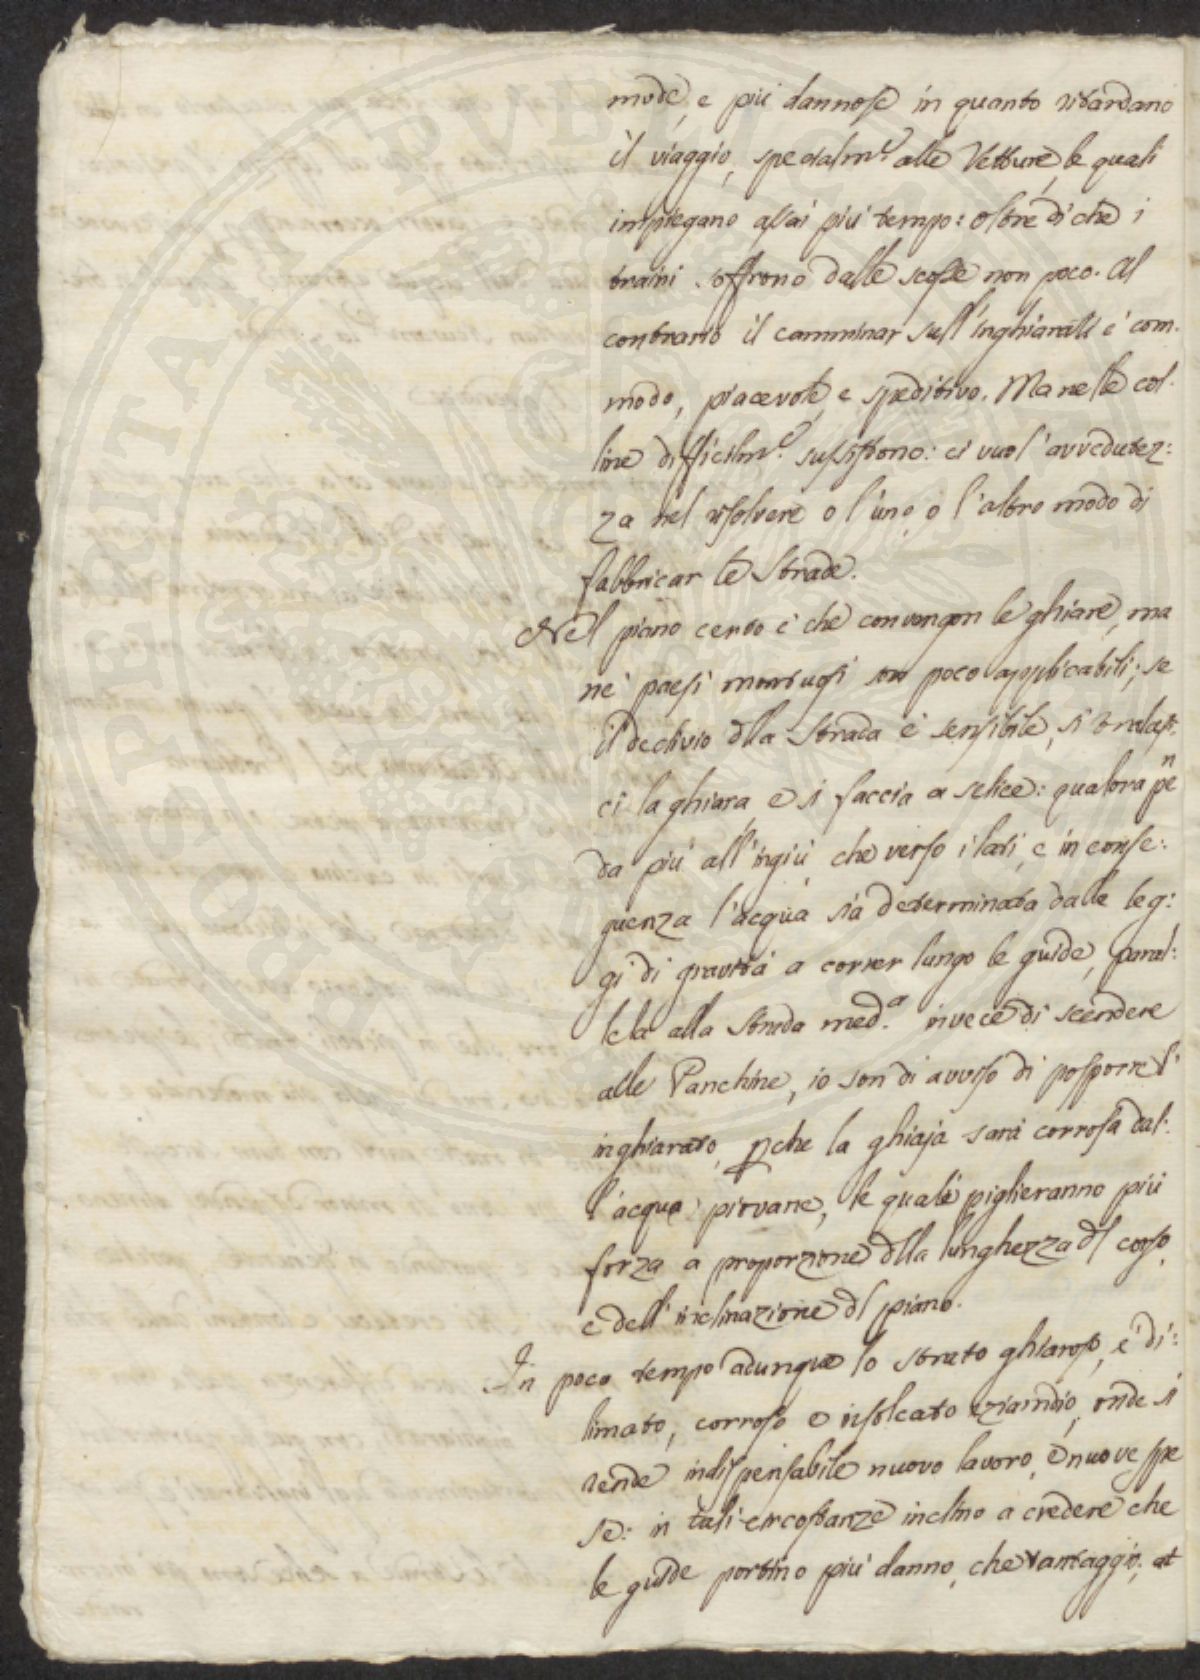 mode, e più dannose in quanto ritardano
il viaggio, specialm.e alle Vetture, le quali
impiegano assai più tempo: oltre di che i
traini soffrono dalle scosse non poco. Al
contrario il camminar sull'inghiarate è com-
modo, piacevole, e speditivo. Ma nelle col-
line difficilm.e sussistono: ci vuol l'avvedutez:
za nel risolvere o l'uno, o l'altro modo di
fabbricar le Strade.
Nel piano certo è che convengon le ghiare, ma
ne' paesi montuosi son poco applicabili; se
il declivio dlla Strada è sensibile, si tralas-
ci la ghiara, e si faccia a selice: qualora pen
da più all'ingiù, che verso i lati, e in conse:
guenza l'acqua sia determinata dalle leg:
gi di gravità a correr lungo le guide, paral:
lela alla strada med.a invece di scendere
alle Panchine, io son di avviso di posporre l'
inghiarato, pche la ghiaja sarà corrosa dal:
l'acque piovane, le quali piglieranno più
forza a proporzione dlla lunghezza dl corso,
e dell'inclinazione dl piano.
In poco tempo adunque lo strato ghiaroso, è di:
limato, corroso e insolcato eziandio, onde si
rende indispensabile nuovo lavoro, e nuove spe
se: in tali circostanze inclino a credere che
le guide portino più danno, che vantaggio, at